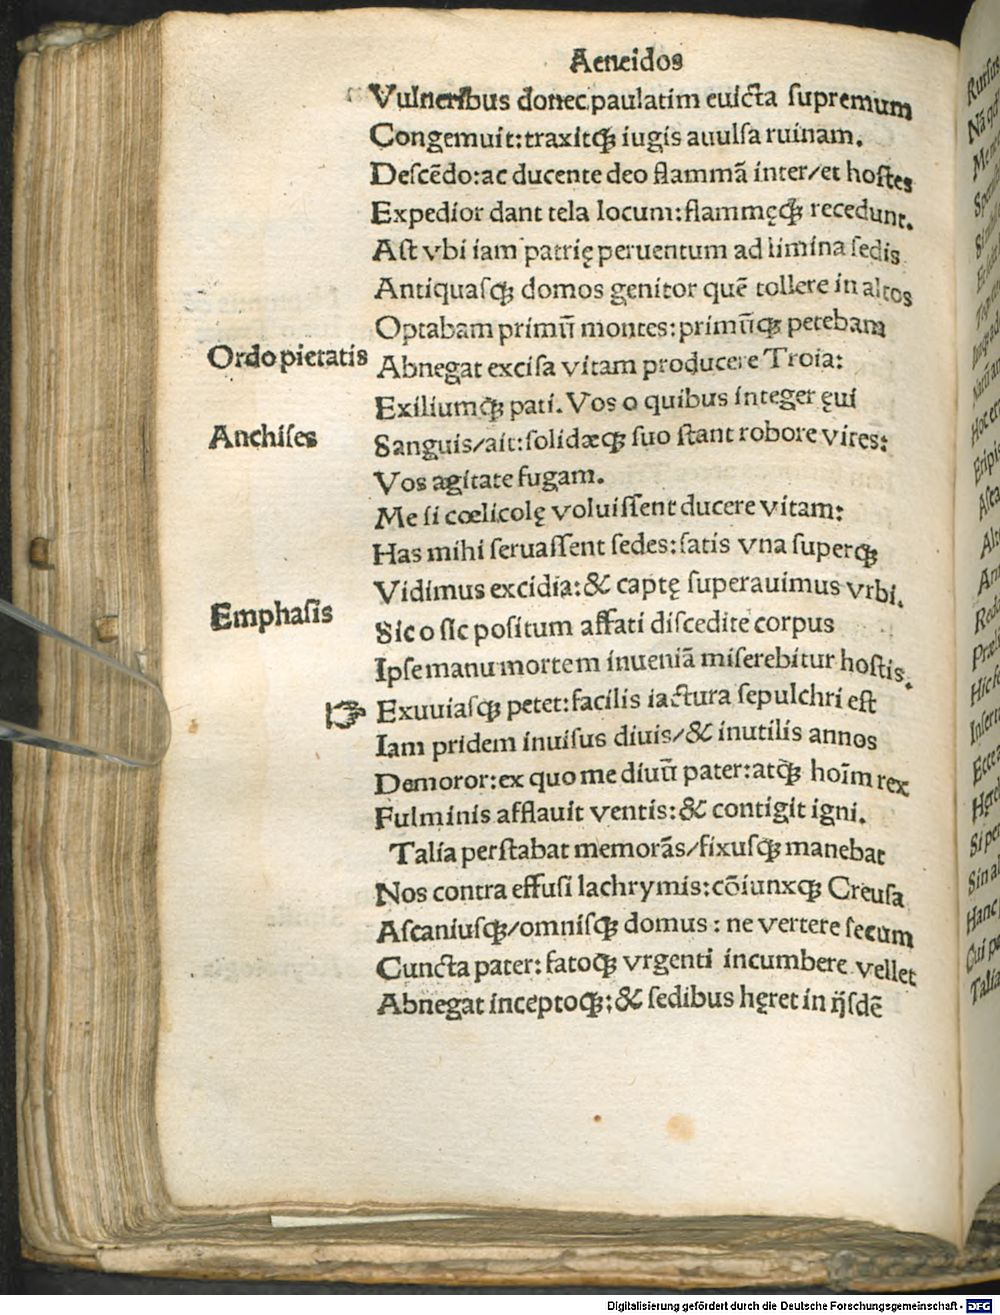 Aeneidos
Vulneribus donec paulatim euicta supremum
Congemuit: traxitqꝫ iugis auulsa ruinam.
Descēdo: ac ducente deo flammā inter/et hostes
Expedior dant tela locum: flammęqꝫ recedunt.
Ast vbi iam patrię peruentum ad limina sedis
Antiquasqꝫ domos genitor quē tollere in altos
Optabam primū montes: primūqꝫ petebam
Ordo pietatis Abnegat excisa vitam producere Troia:
Exiliumqꝫ pati. Vos o quibus integer ęui
Anchises Sanguis/ait: solidæqꝫ suo stant robore vires:
Vos agitate fugam.
Me si cœlicolę voluissent ducere vitam:
Has mihi seruassent sedes: satis vna superqꝫ
Vidimus excidia: & captę superauimus vrbi.
Emphasis Sic o sic positum affati discedite corpus
Ipse manu mortem inueniā miserebitur hostis.
☞ Exuuiasqꝫ petet: facilis iactura sepulchri est
Iam pridem inuisus diuis/& inutilis annos
Demoror: ex quo me diuū pater: atqꝫ hoīm rex
Fulminis afflauit ventis: & contigit igni.
Talia perstabat memorās/fixusqꝫ manebat
Nos contra effusi lachrymis: cōiunxqꝫ Creusa
Ascaniusqꝫ/omnisqꝫ domus: ne vertere secum
Cuncta pater: fatoqꝫ vrgenti incumbere vellet
Abnegat inceptoqꝫ: & sedibus hęret in ijsdē
Digitalisierung gefördert durch die Deutsche Forschungsgemeinschaft - DFG